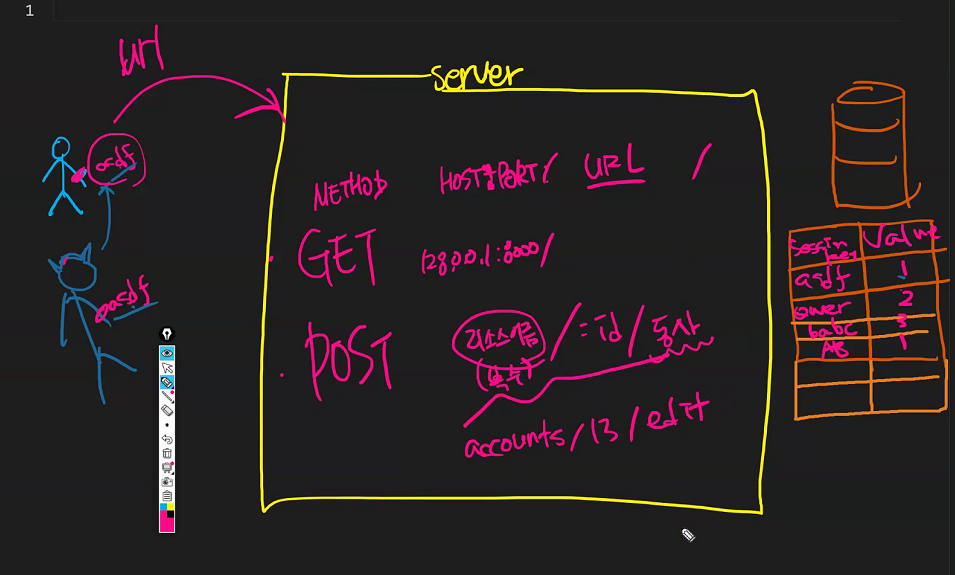 1
url
server
asdf
METHOD HOST:PORT/ URL /
GET 128.0.0.1:8000/
asdf
POST 리소스이름 / :id / 동사
(복수)
accounts/13/edit
session key Value
asdf 1
qwer 2
babc 3
AB 1